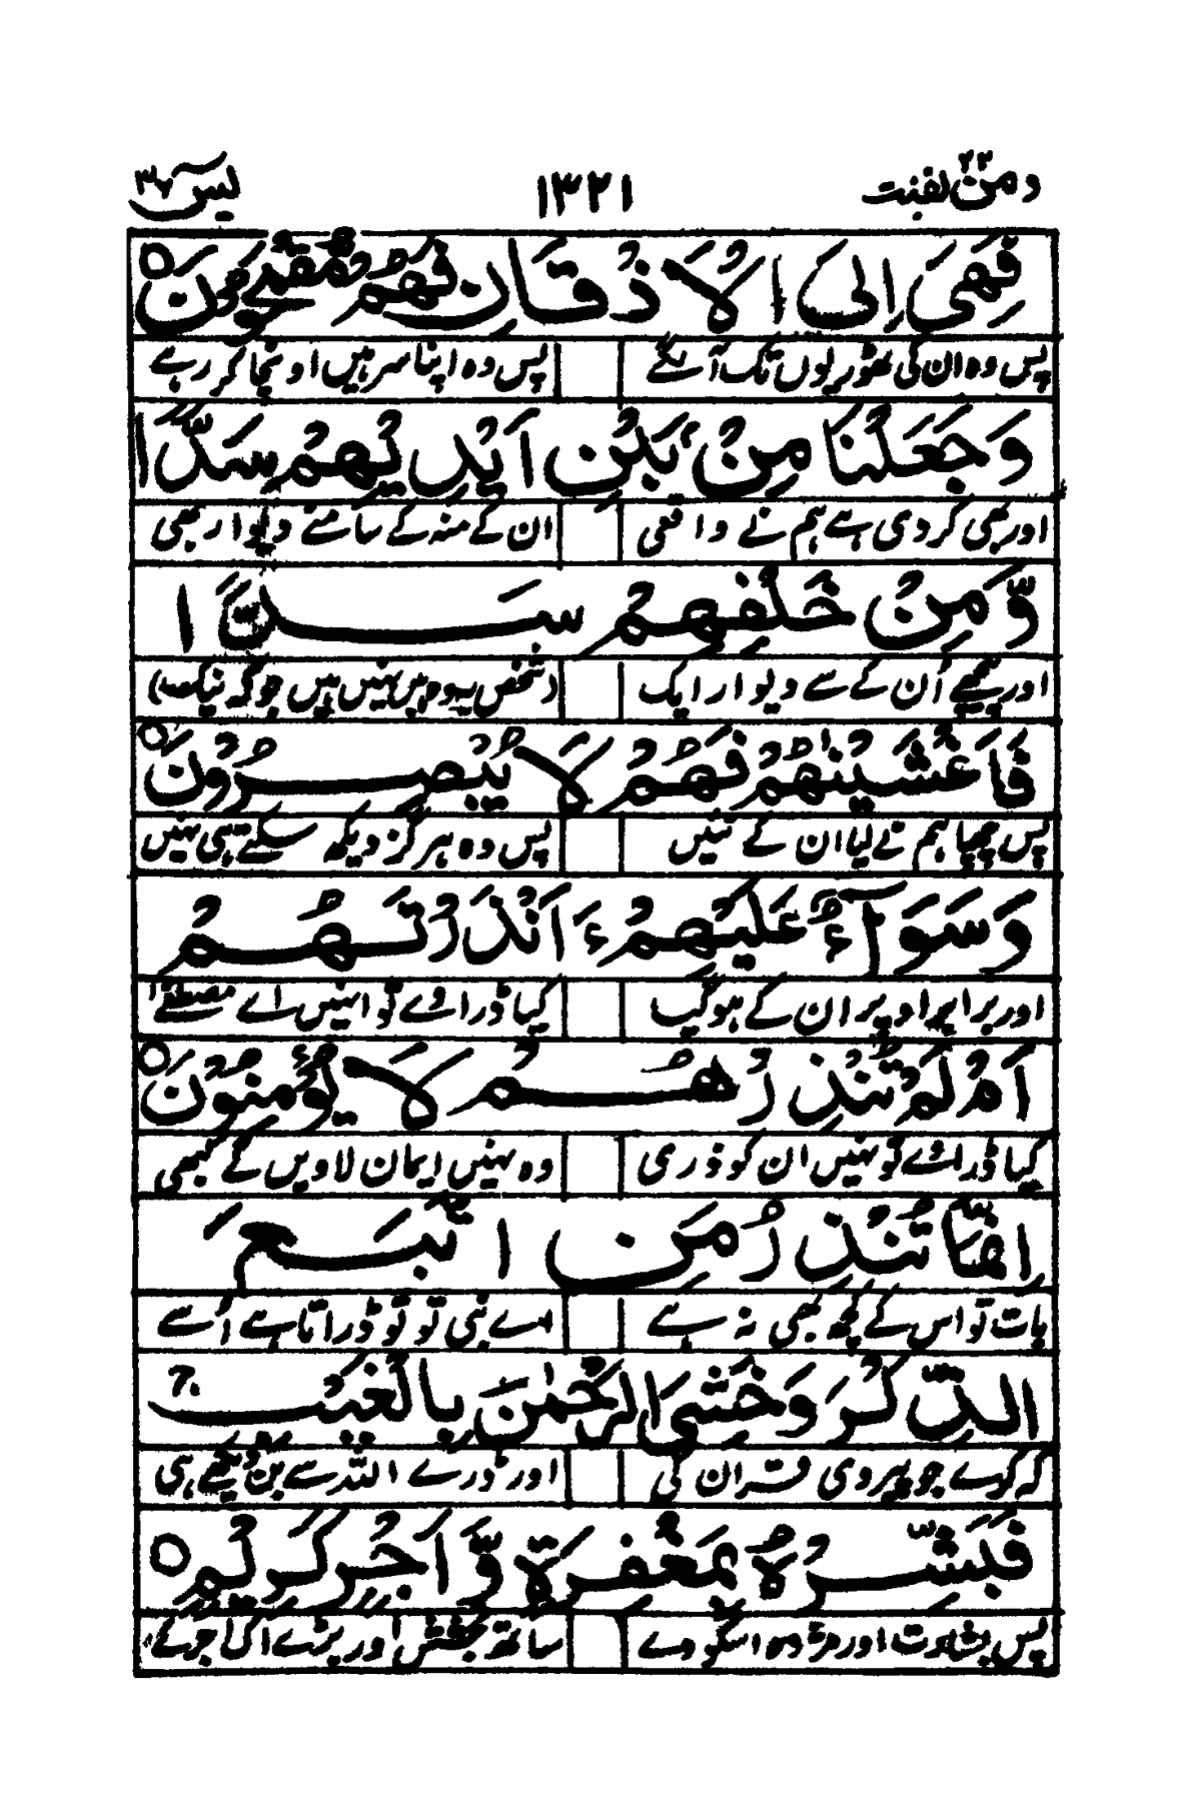 ومن یقنت ۲۲ ۱۳۲۱ یٰسٓ ۳۶
فَهِیَ اِلَی الْاَذْقَانِ فَهُمْ مُّقْمَحُوْنَ ○
پس وہ ان کی ٹھوڑیوں تک آ لگے پس وہ اپنا سر ہیں اونچا کر رہے
وَجَعَلْنَا مِنْۢ بَیْنِ اَیْدِیْهِمْ سَدًّا
اور بھی کر دی ہے ہم نے واقعی ان کے منہ کے سامنے دیوار بھی
وَّمِنْ خَلْفِهِمْ سَدًّا
اور پیچھے اُن کے سے دیوار ایک (شخص یہ وہ ہیں نہیں ہیں جو کہ نیک)
فَاَغْشَیْنٰهُمْ فَهُمْ لَا یُبْصِرُوْنَ ○
پس چھپا ہم نے لیا ان کے تئیں پس وہ ہرگز دیکھ سکتے ہی نہیں
وَسَوَآءٌ عَلَیْهِمْ ءَاَنْذَرْتَهُمْ
اور برابر اوپر ان کے ہو گیا کیا ڈراوے تو انہیں اے مصطفےٰ
اَمْ لَمْ تُنْذِرْهُمْ لَا یُؤْمِنُوْنَ ○
کیا ڈراوے تو نہیں ان کو ذری وہ نہیں ایمان لاویں گے کبھی
اِنَّمَا تُنْذِرُ مَنِ اتَّبَعَ
بات تو اس کے کچھ بھی نہ ہے اے نبی تو تو ڈراتا ہے اُسے
الذِّكْرَ وَخَشِیَ الرَّحْمٰنَ بِالْغَیْبِ
کہ کرے جو پیروی قرآن کی اور ڈرے اللہ سے بن دیکھے ہی
فَبَشِّرْهُ بِمَغْفِرَةٍ وَّاَجْرٍ كَرِیْمٍ ○
پس بشارت اور مژدہ اسکو دے ساتھ بخشش اور بڑے اک اجر کے